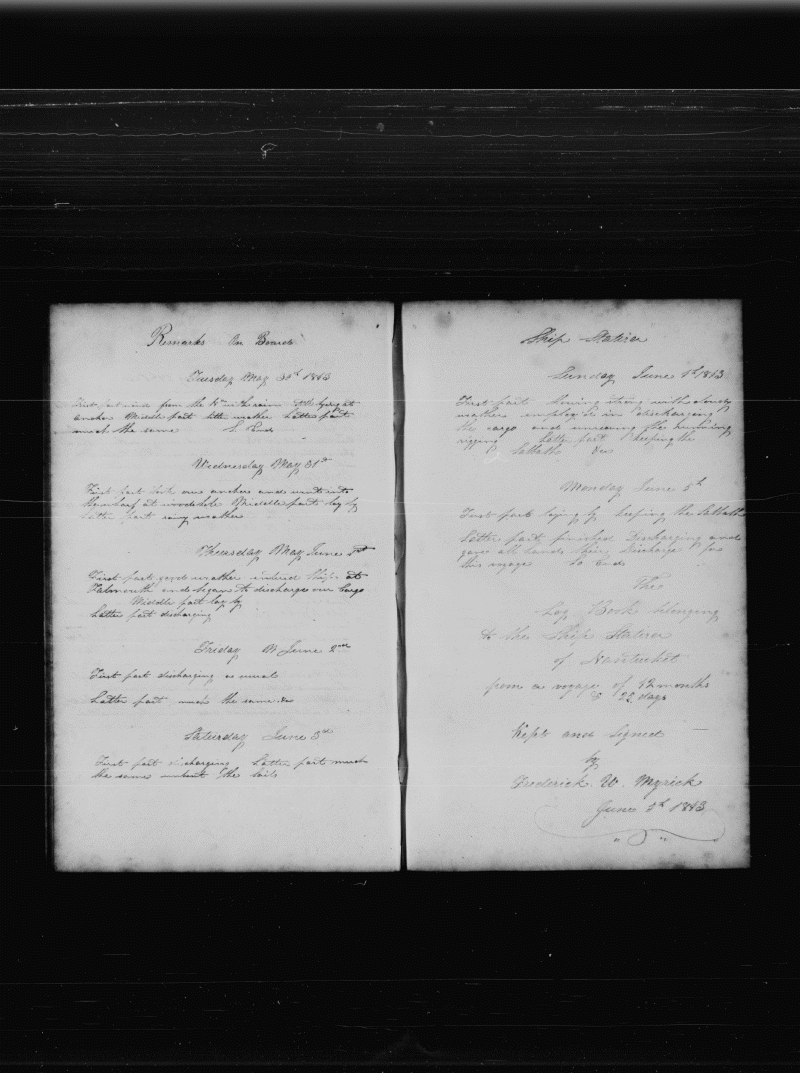 Remarks On Board
Tuesday May 30th 1843
First part winds from the with rain lying at
anchor Middle part little weather Latter part
much the same So Ends
Wednesday May 31st
First part took our anchor and went into
the wharf at woodshole Middle part lay by
Latter part rainy weather
Thursday May June 1st
First part good weather entered Ship at
Falmouth and began to discharge our Cargo
Middle part lay by
Latter part discharging
Friday June 2nd
First part discharging as usual
Latter part much the same &c
Saturday June 3rd
First part discharging Latter part much
the same unbent the sails
Ship Statira
Sunday June 4th 1843
First part strong with cloudy
weather employed in discharging
the cargo and unreeving the running
rigging Latter part keeping the
Sabbath &c
Monday June 5th
First part laying by keeping the Sabbath
Latter part finished discharging and
gave all hands their discharge for
this voyage So Ends
The
Log Book belonging
to the Ship Statira
of Nantucket
from a voyage of 42 months
& 22 days
Kept and Signed
by
Frederick W. Myrick
June 5th 1843